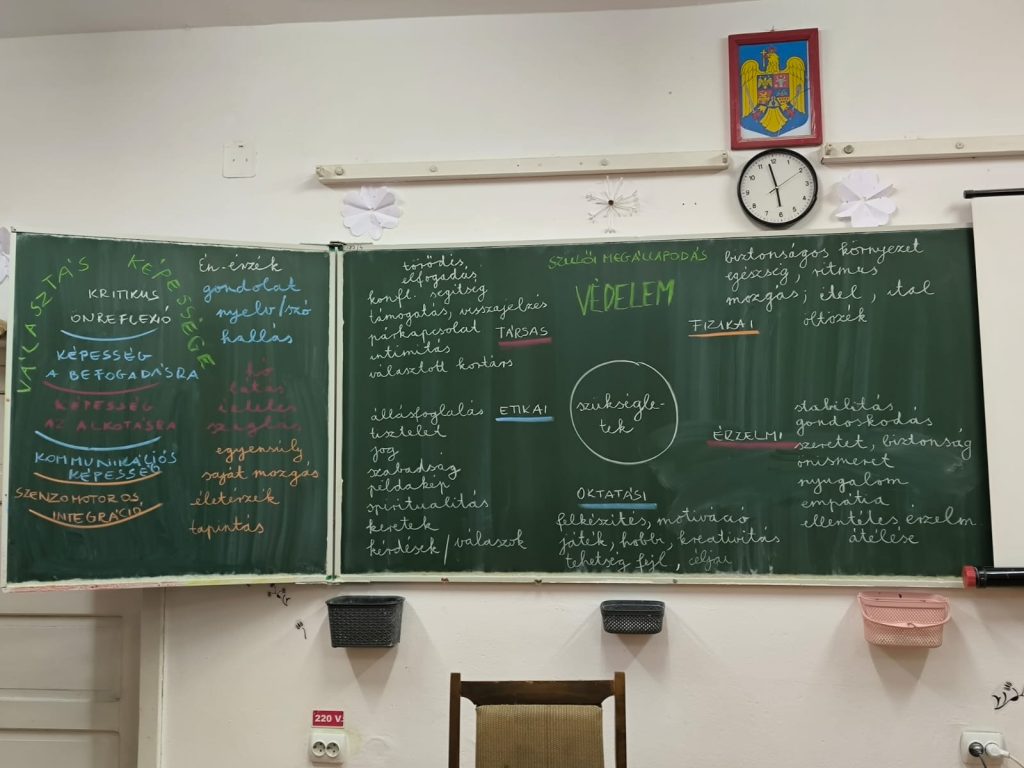 VÁLASZTÁS KÉPESSÉGE
KRITIKUS
ÖNREFLEXIÓ
KÉPESSÉG
A BEFOGADÁSRA
KÉPESSÉG
AZ ALKOTÁSRA
KOMMUNIKÁCIÓS
KÉPESSÉG
SZENZOMOTOROS
INTEGRÁCIÓ
Én-érzék
gondolat
nyelv/szó
hallás
hő
látás
ízlelés
szaglás
egyensúly
saját mozgás
életérzék
tapintás
törődés,
elfogadás
konfl. segítség
támogatás, visszajelzés
párkapcsolat
intimitás
választott kortárs
TÁRSAS
állásfoglalás
tisztelet
jog
szabadság
példakép
spiritualitás
keretek
kérdések / válaszok
ETIKAI
SZÜLŐI MEGÁLLAPODÁS
VÉDELEM
szükségle-
tek
OKTATÁSI
felkészítés, motiváció
játék, hobbi, kreativitás
tehetség fejl, céljai
biztonságos környezet
egészség, ritmus
mozgás; étel, ital
öltözék
FIZIKAI
ÉRZELMI
stabilitás
gondoskodás
szeretet, biztonság
önismeret
nyugalom
empátia
ellentétes érzelm.
átélése
12
1
2
3
4
5
6
7
8
9
10
11
220 V.